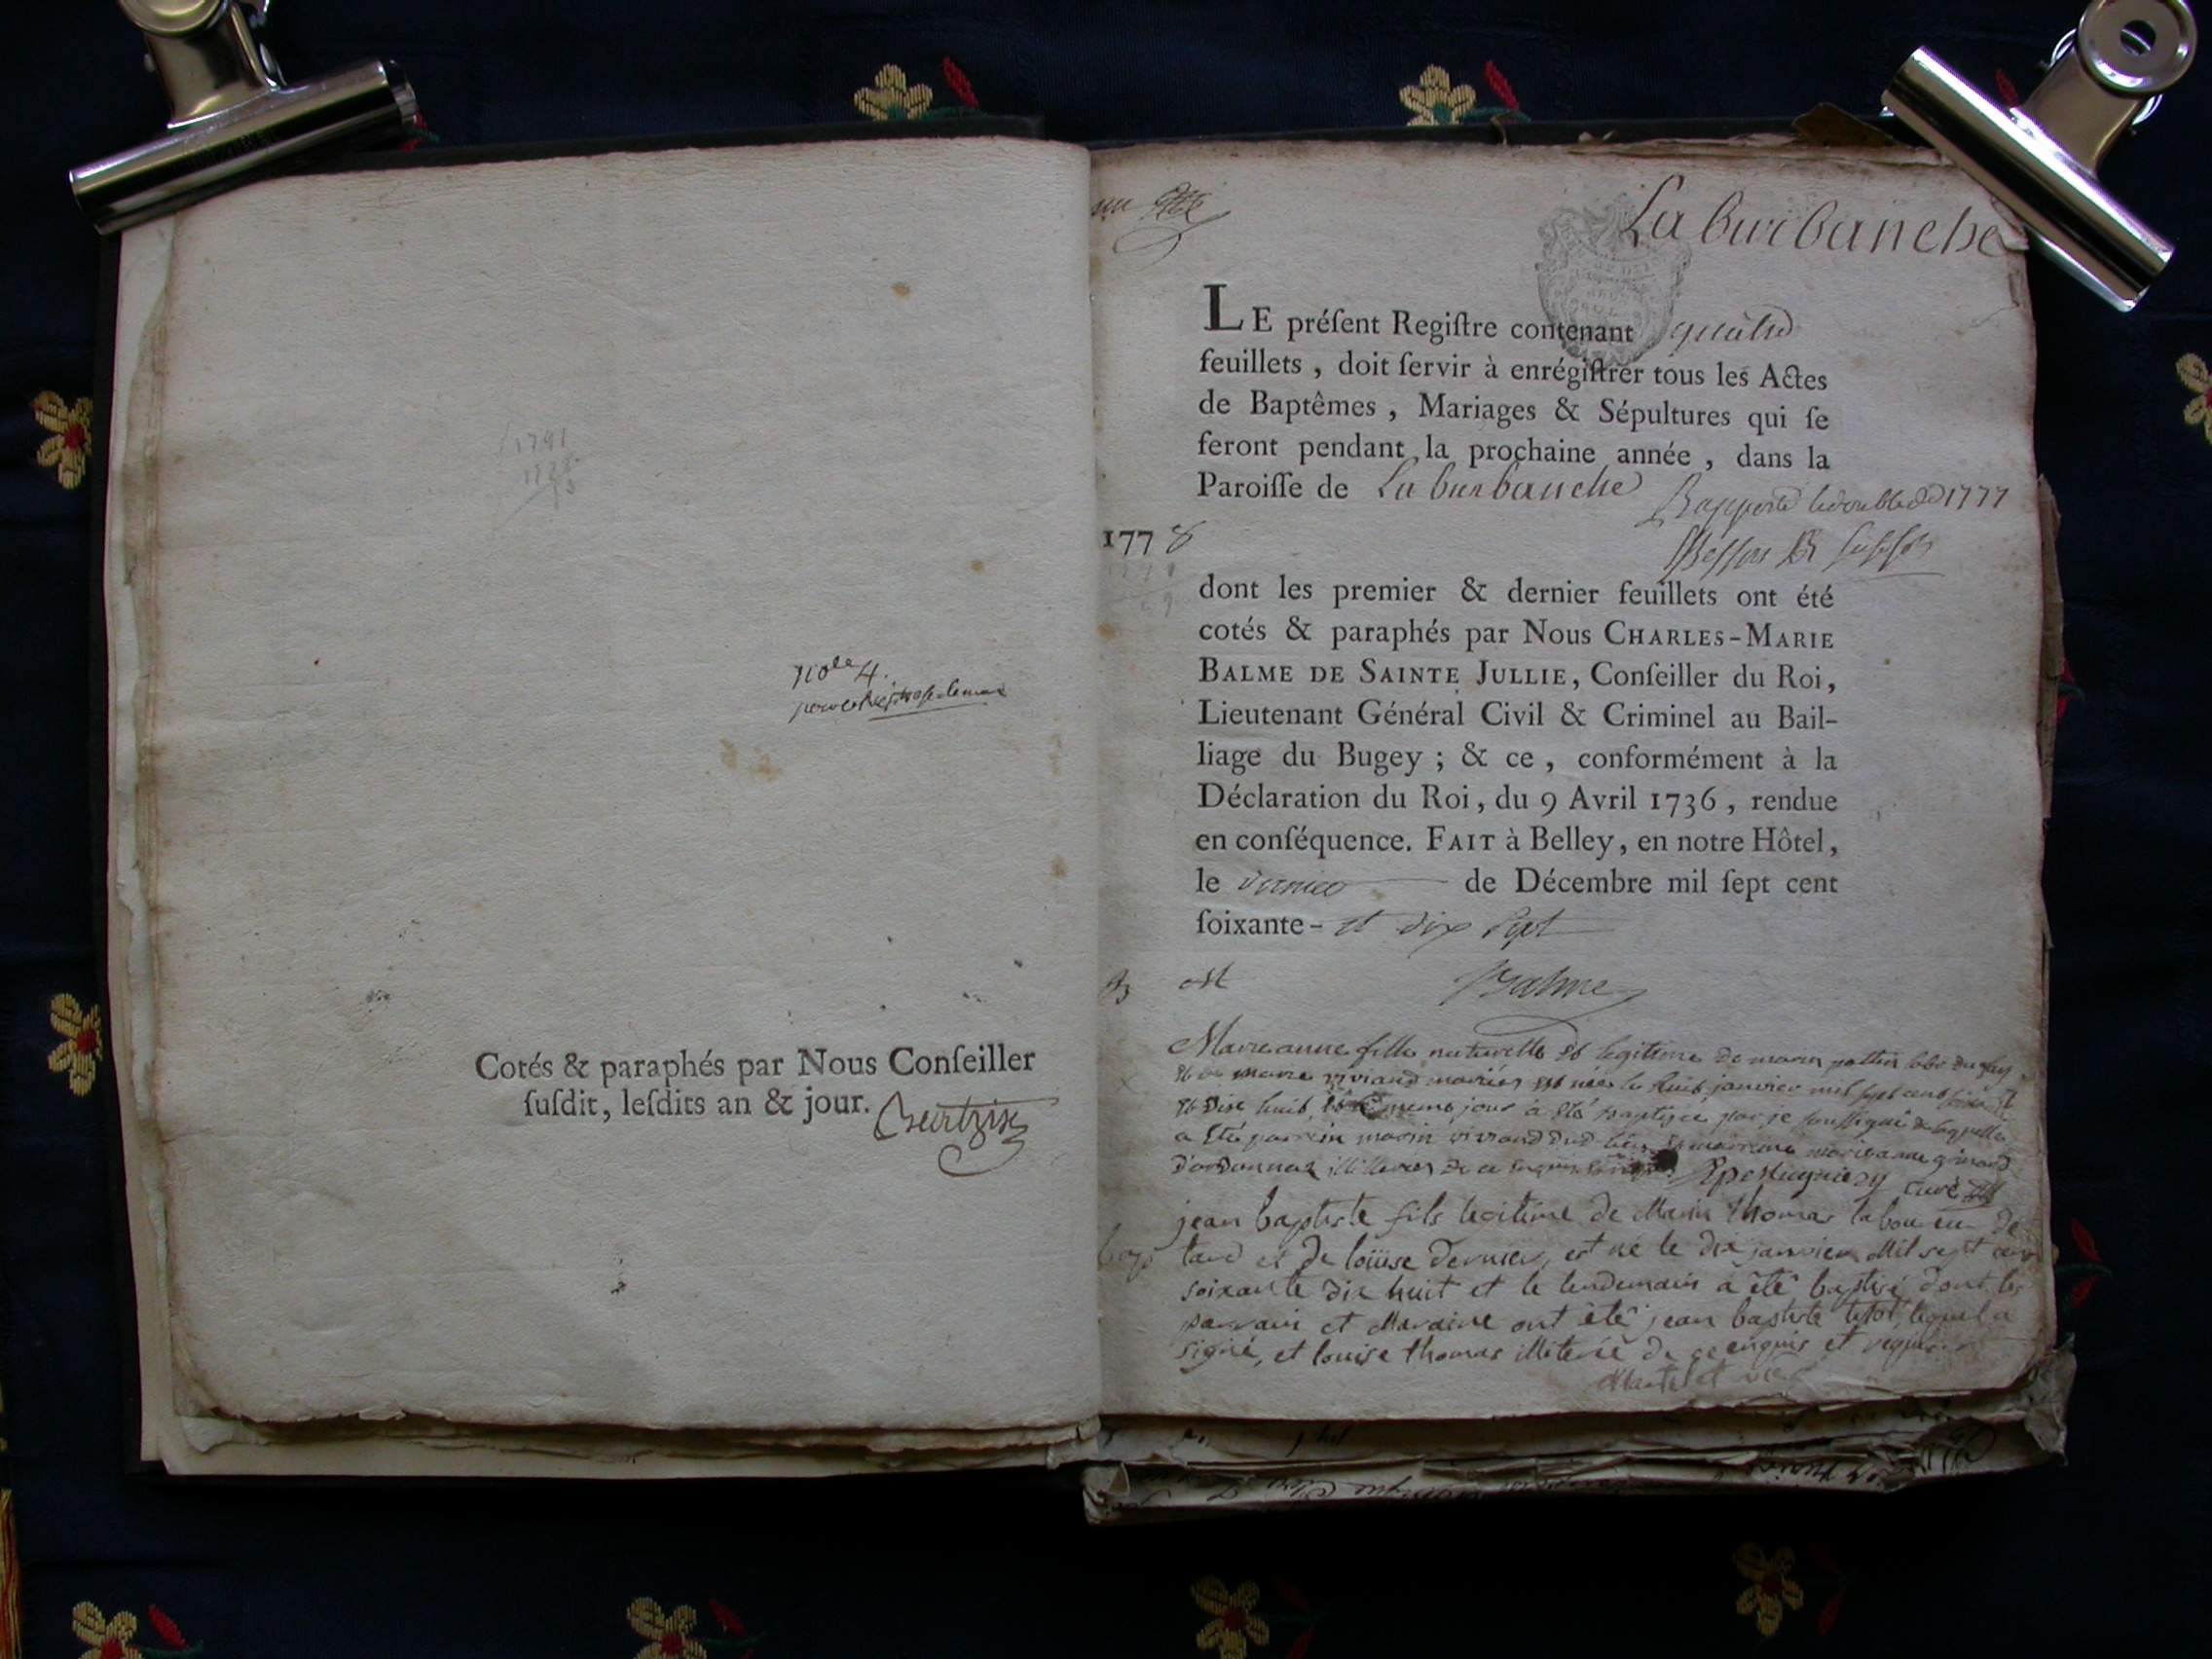 1791
note 4.
Cotés & paraphés par Nous Conſeiller
ſuſdit, leſdits an & jour.
La burbanche
LE préſent Regiſtre contenant quatre
feuillets, doit ſervir à enrégiſtrer tous les Actes
de Baptêmes, Mariages & Sépultures qui ſe
feront pendant la prochaine année, dans la
Paroiſſe de La burbanche
Rapporté le double de 1777
1778
dont les premier & dernier feuillets ont été
cotés & paraphés par Nous CHARLES-MARIE
BALME DE SAINTE JULLIE, Conſeiller du Roi,
Lieutenant Général Civil & Criminel au Bail-
liage du Bugey ; & ce, conformément à la
Déclaration du Roi, du 9 Avril 1736, rendue
en conſéquence. FAIT à Belley, en notre Hôtel,
le dernier de Décembre mil ſept cent
ſoixante - et dix sept
Balme
Marie anne fille naturelle et legitime de marin
et de marie viviand mariés est née le huit janvier mil sept cent
et dix huit, et le meme jour a été baptisée par je soussigné
a été parrein marin viviand dud. lieu et marrene marie anne
d'ordonnaz illiteres de ce enquis curé
jean baptiste fils legitime de Marin thomas laboureur de
tard et de loüise dernier, est né le dix janvier Mil sept cent
soixante dix huit et le lendemain a été baptisé, dont les
parrain et Maraine ont été jean baptiste tetot, lequel a
signé, et louise thomas illiterée de ce enquis et requise